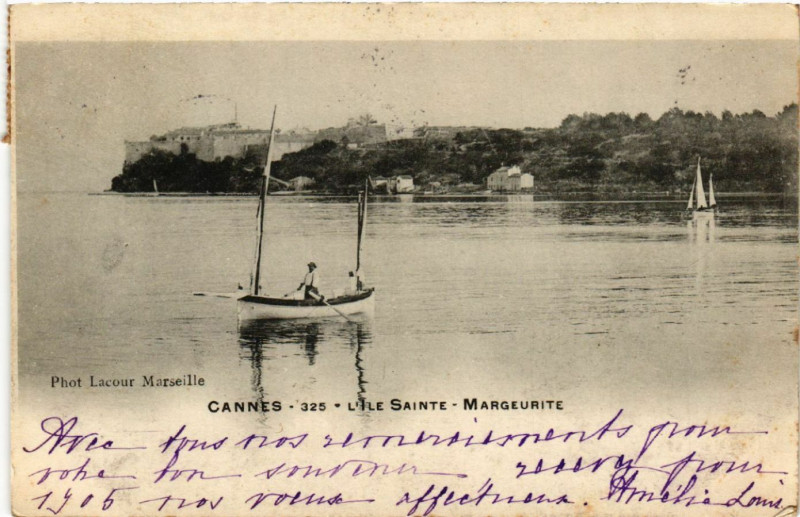 Phot Lacour Marseille
CANNES - 325 - L'ILE SAINTE - MARGEURITE
Avec tous nos remerciements pour
votre bon souvenir recevez pour
1905 nos voeux affectueux. Amélie Louis